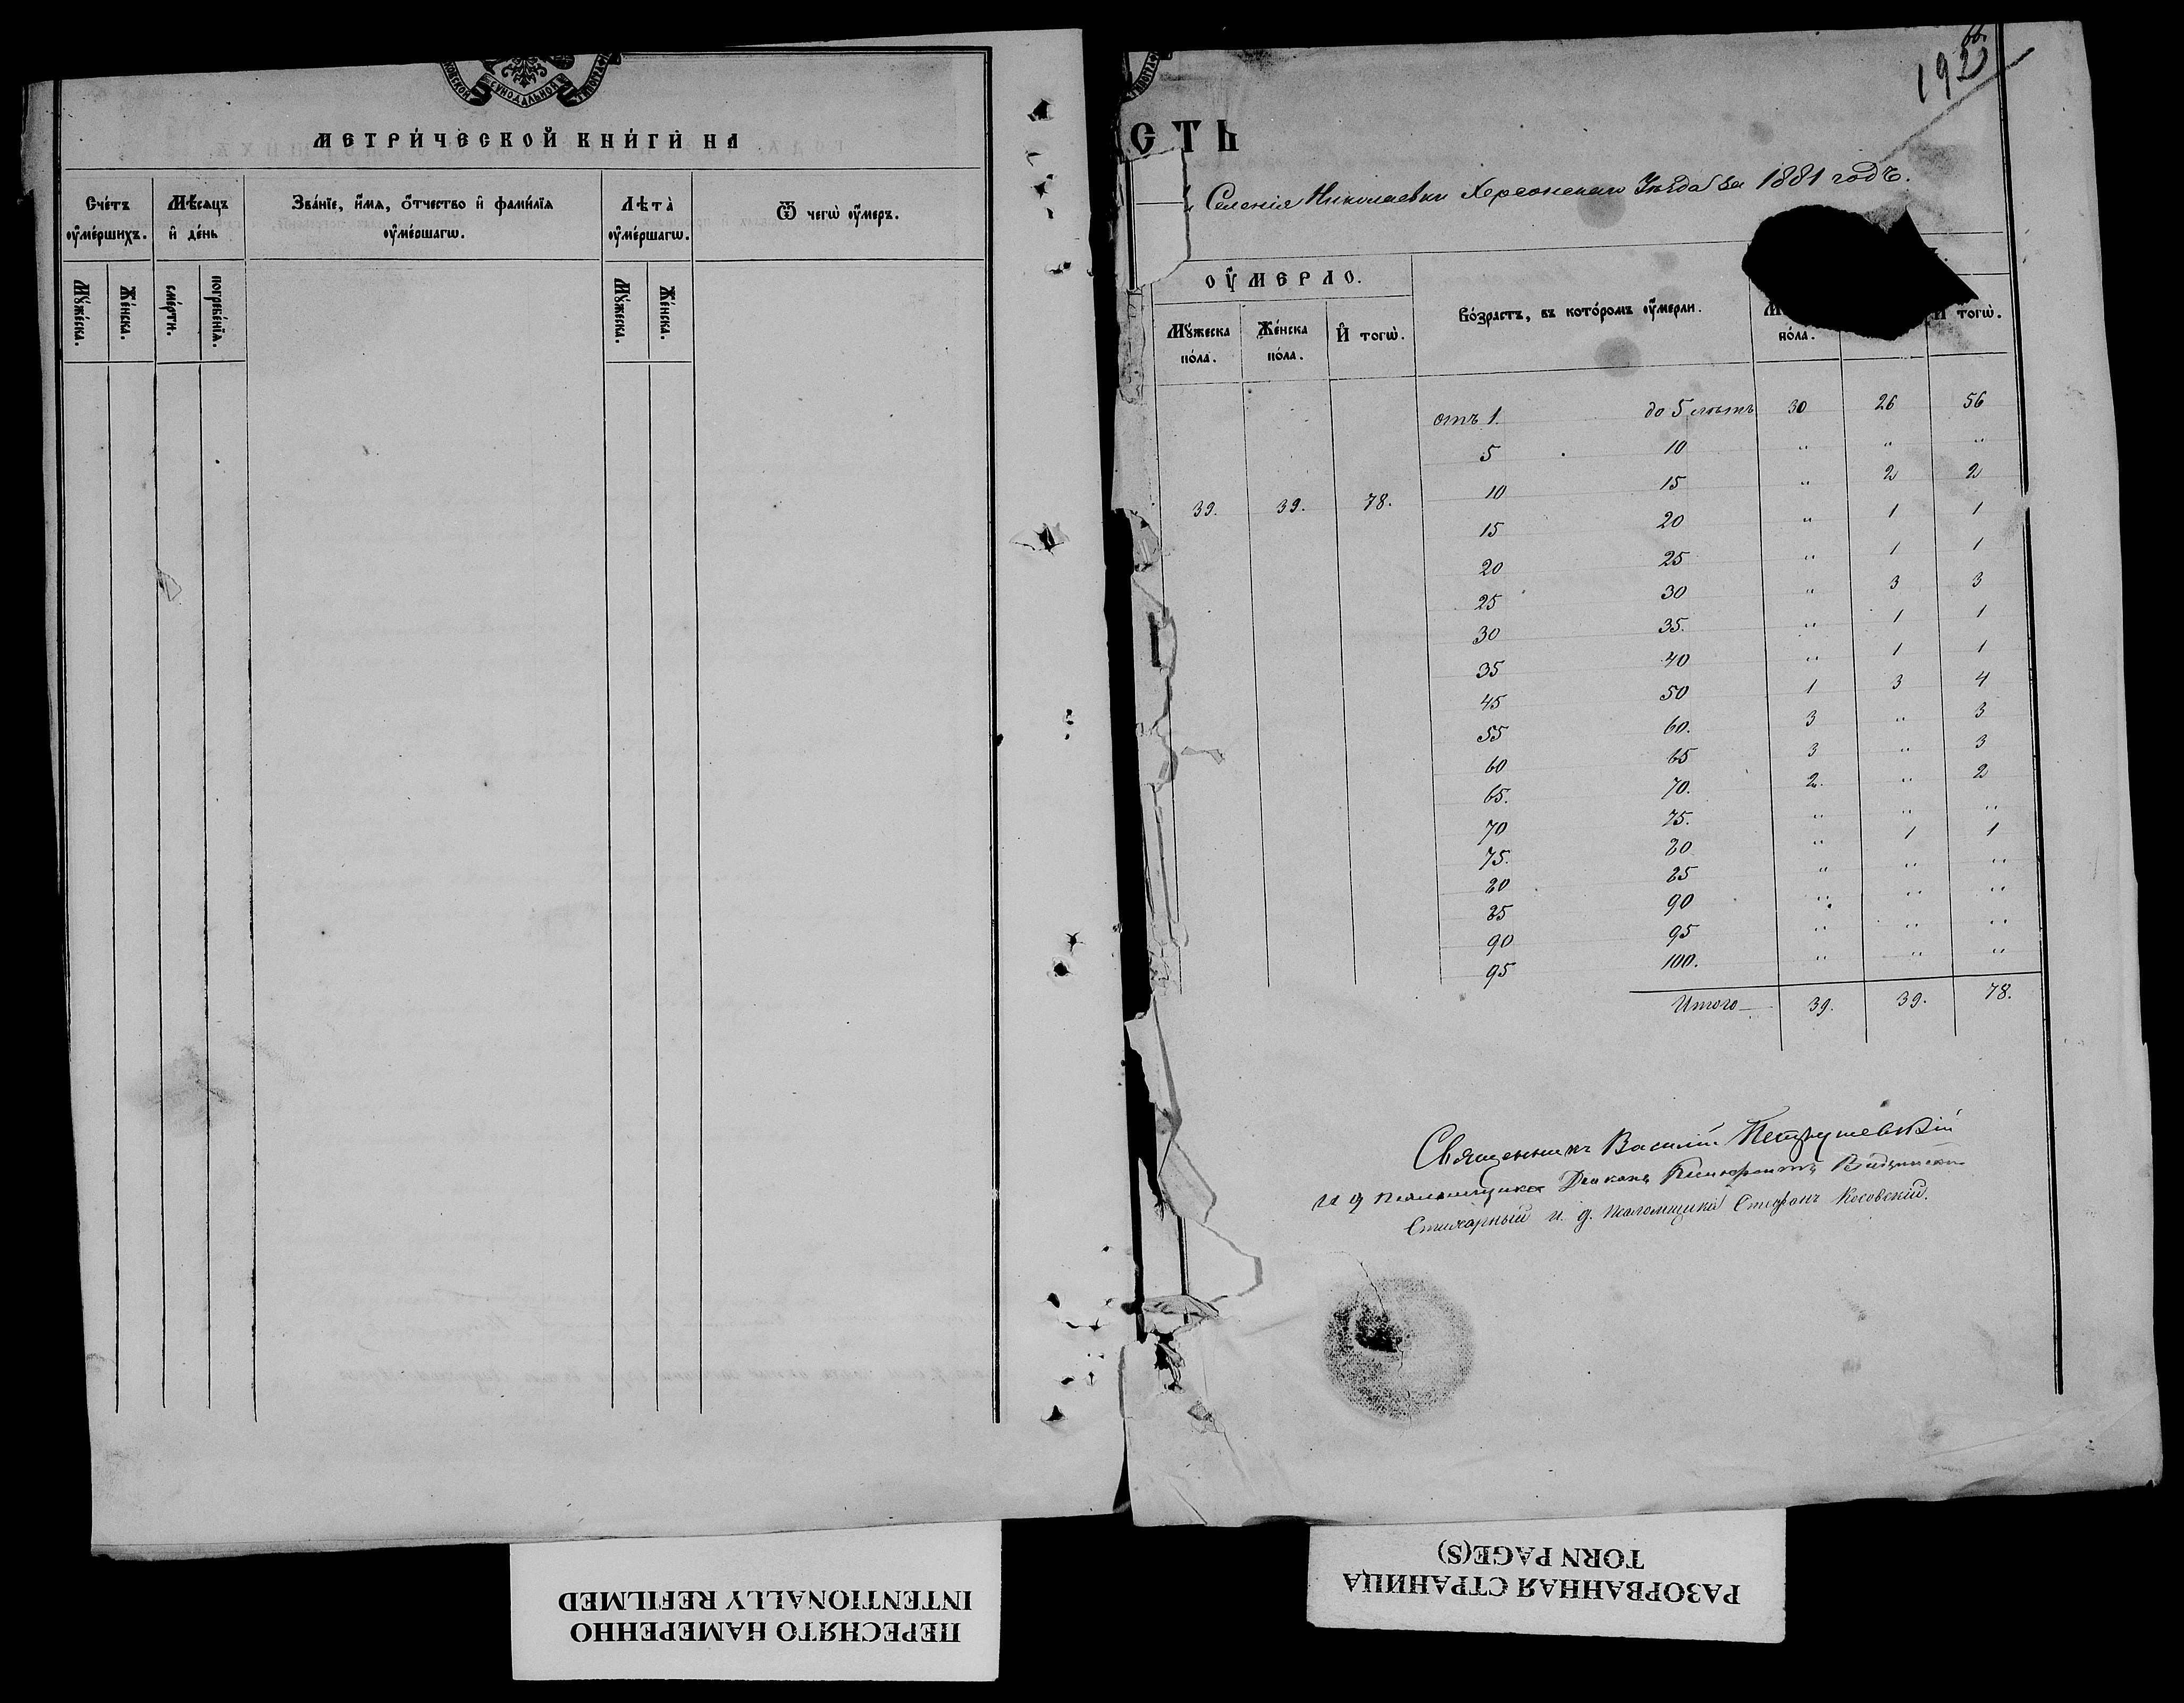 СѴНОДАЛЬНОЙ
МЕТРИ́ЧЕСКОЙ КНИ́ГИ НА
Сче́тъ оу҆ме́ршихъ.
Мѣ́сяцъ и҆ де́нь
Зва́нїе, и҆́мѧ, ѻ҆́тчество и҆ фами́лїѧ оу҆ме́ршагѡ.
Лѣта̀ оу҆ме́ршагѡ.
Ѿ чегѡ̀ оу҆́меръ.
Мꙋ́жеска.
Же́нска.
сме́рти.
погребе́нїѧ.
Мꙋ́жеска.
Же́нска.
192
СТЬ
Селенія Николаевки Херсонскаго Уѣзда за 1881 годъ.
ОУ҆́МЕРЛО.
Мꙋ́жеска по́ла.
Же́нска по́ла.
И҆ тогѡ̀.
Во́зрастъ, въ кото́ромъ оу҆́мерли.
по́ла.
И҆ тогѡ̀.
39. 39. 78.
отъ 1. до 5 лѣтъ 30 26 56
5 10 " " "
10 15 " 2 2
15 20 " 1 1
20 25 " 1 1
25 30 " 3 3
30 35. " 1 1
35 40 " 1 1
45 50 1 3 4
55 60. 3 " 3
60 65 3 " 3
65. 70. 2. " 2
70 75. " " "
75. 80 " 1 1
80 85 " " "
85 90 " " "
90 95 " " "
95 100. " " "
Итого 39. 39. 78.
Священникъ Василій Петрушевскій
И д псаломщика Діаконъ
Стихарный и. д. псаломщика Стефанъ Косовскій.
ПЕРЕСНЯТО НАМЕРЕННО
INTENTIONALLY REFILMED
РАЗОРВАННАЯ СТРАНИЦА
TORN PAGE(S)